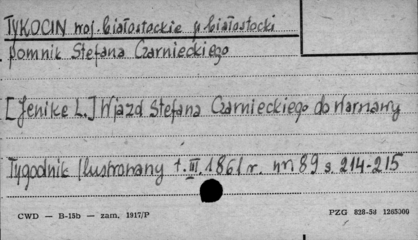 TYKOCIN woj. białostockie p białostocki
pomnik Stefana Czarnieckiego
[Jenike L.] Wjazd Stefana Czarnieckiego do Warszawy
Tygodnik Ilustrowany t. III. 1861 r. nr 89 s. 214-215
CWD — B-15b — zam. 1917/P
PZG 828-58 1265000